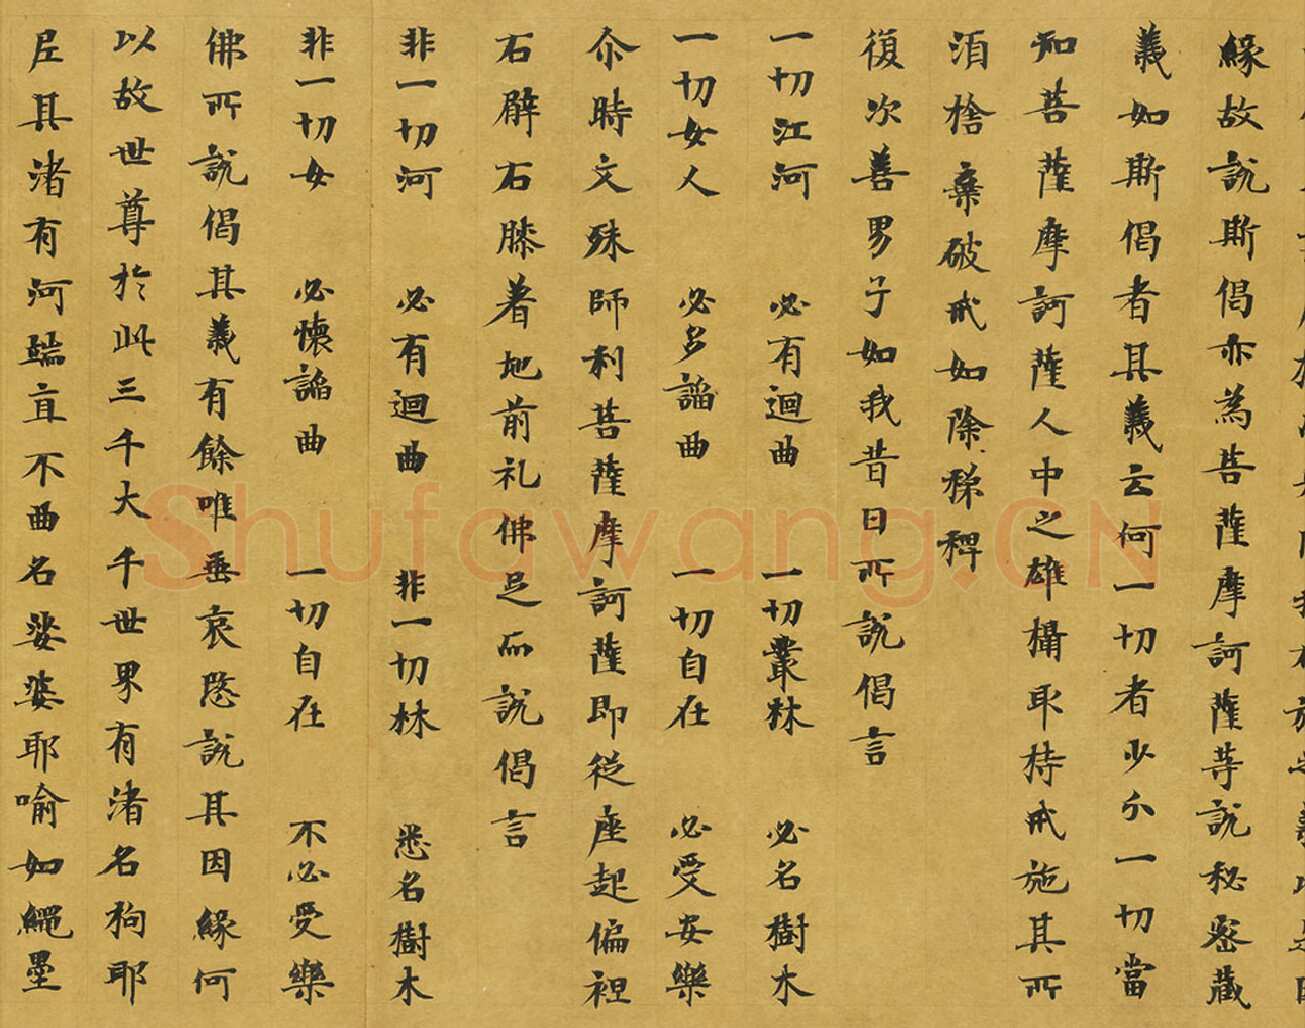 緣故說斯偈亦為菩薩摩訶薩等說秘密藏
義如斯偈者其義云何一切者少分一切當
知菩薩摩訶薩人中之雄攝取持戒施其所
須捨棄破戒如除稊稗
復次善男子如我昔日所說偈言
一切江河 必有迴曲 一切叢林 必名樹木
一切女人 必多諂曲 一切自在 必受安樂
尒時文殊師利菩薩摩訶薩即從座起偏袒
右臂右膝著地前礼佛足而說偈言
非一切河 必有迴曲 非一切林 悉名樹木
非一切女 必懷諂曲 一切自在 不必受樂
佛所說偈其義有餘唯垂哀愍說其因緣何
以故世尊於此三千大千世界有渚名拘耶
尼其渚有河端直不曲名娑婆耶喻如繩墨
Shufawang.CN